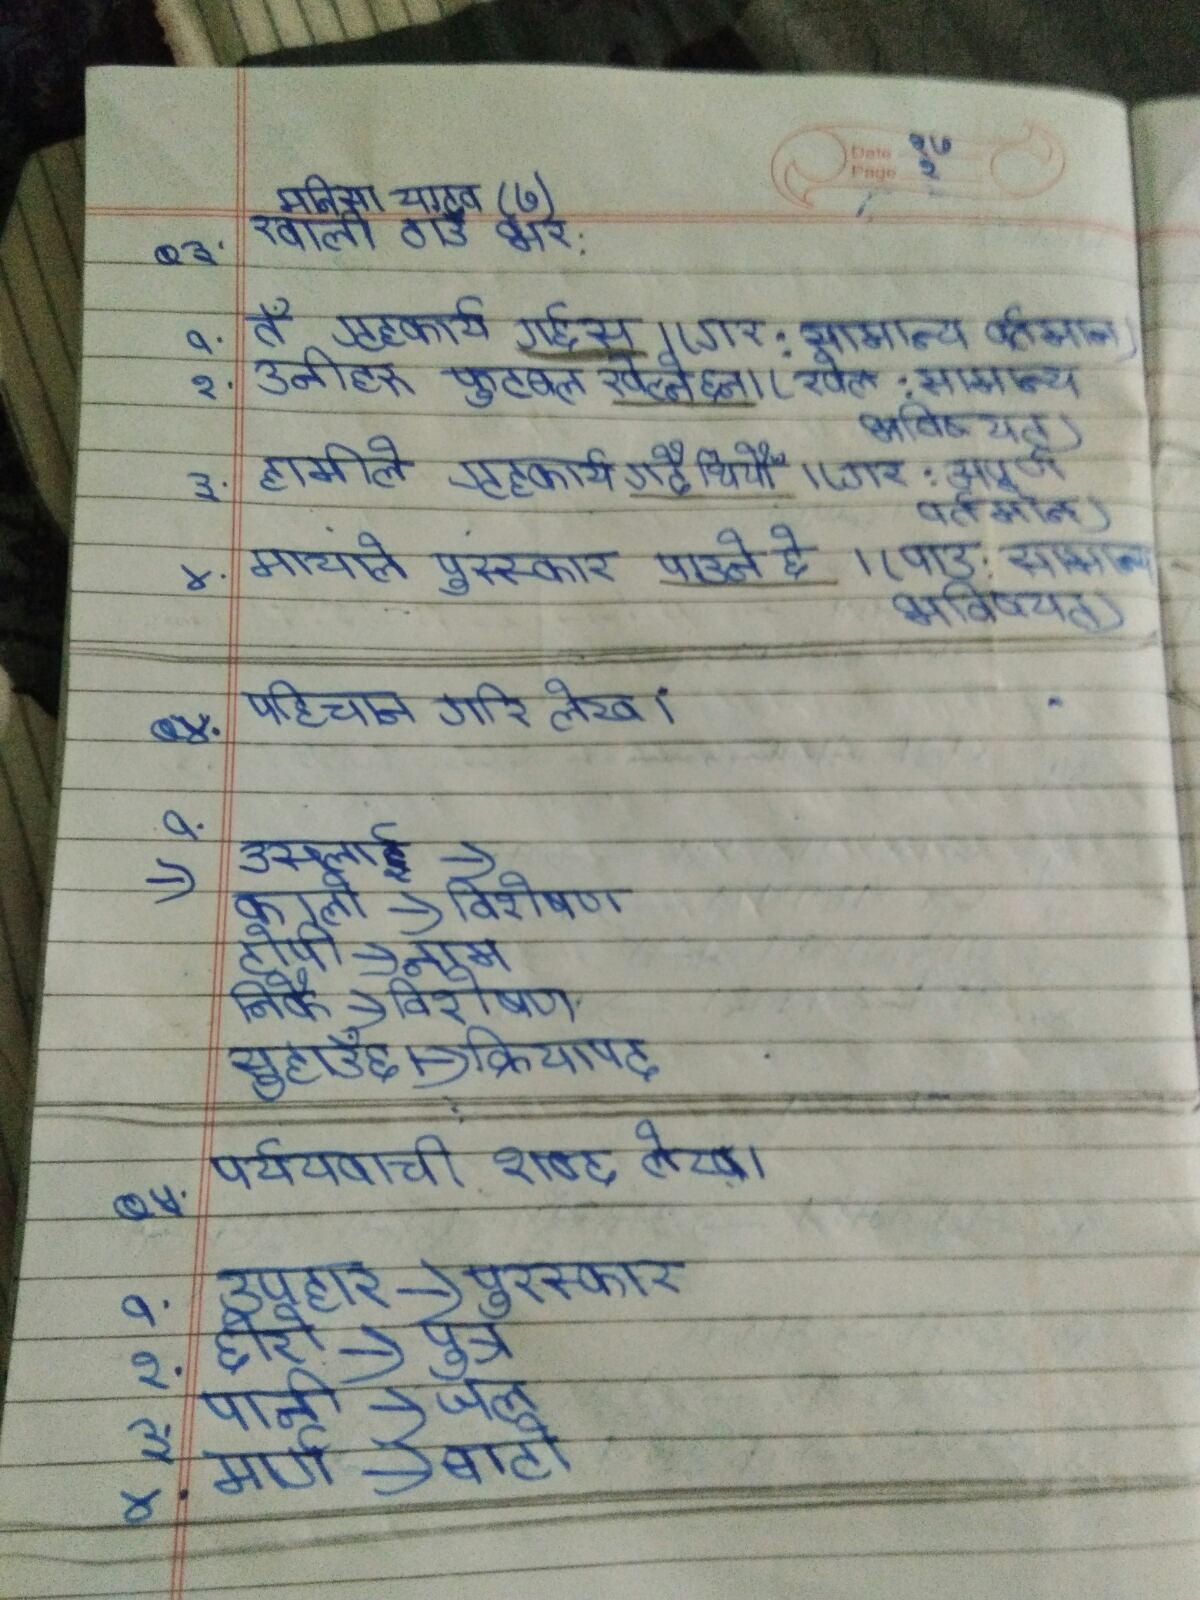 Date १७
Page २
मनिसा यादव (७)
Q३. खाली ठाउँ भर:
१. तँ गृहकार्य गर्दछस् । (गर : सामान्य वर्तमान)
२. उनीहरू फुटबल खेल्नेछन् । (खेल : सामान्य
भविष्यत्)
३. हामीले गृहकार्य गर्दै थियौँ । (गर : अपूर्ण
वर्तमान)
४. मायाले पुरस्कार पाउने छे । (पाउ : सामान्य
भविष्यत्)
Q४. पहिचान गरि लेख ।
१.
⇒ उसलाई →
कालो → विशेषण
टोपी → नाम
निकै → विशेषण
सुहाउँछ । → क्रियापद
Q५. पर्ययवाची शब्द लेख ।
१. उपहार → पुरस्कार
२. छोरो → पुत्र
३. पानी → जल
४. मार्ग → बाटो